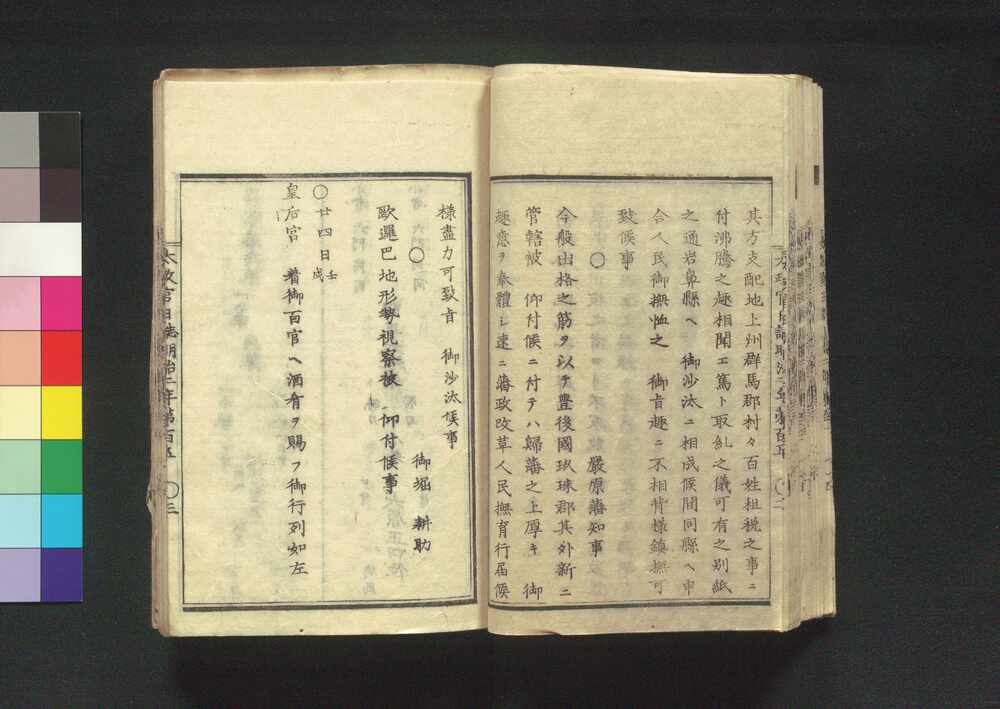 其方支配地上州群馬郡村々百姓租税之事ニ
付沸騰之趣相聞エ篤ト取糺之儀可有之別紙
之通岩鼻縣ヘ　御沙汰ニ相成候間同縣ヘ申
合人民御撫恤之　御旨趣ニ不相背様鎮撫可
致候事
〇　嚴原藩知事
今般由格之筋ヲ以テ豊後國玖珠郡其外新ニ
管轄被　仰付候ニ付テハ歸藩之上厚キ　御
趣意ヲ奉體シ速ニ藩政改革人民撫育行届候
様盡力可致旨　御沙汰候事
〇　御堀　耕助
歐邏巴地形勢視察被　仰付候事
〇廿四日壬戌
皇后宮　着御百官ヘ酒肴ヲ賜フ御行列如左
太政官日誌明治二年第百五　〇三